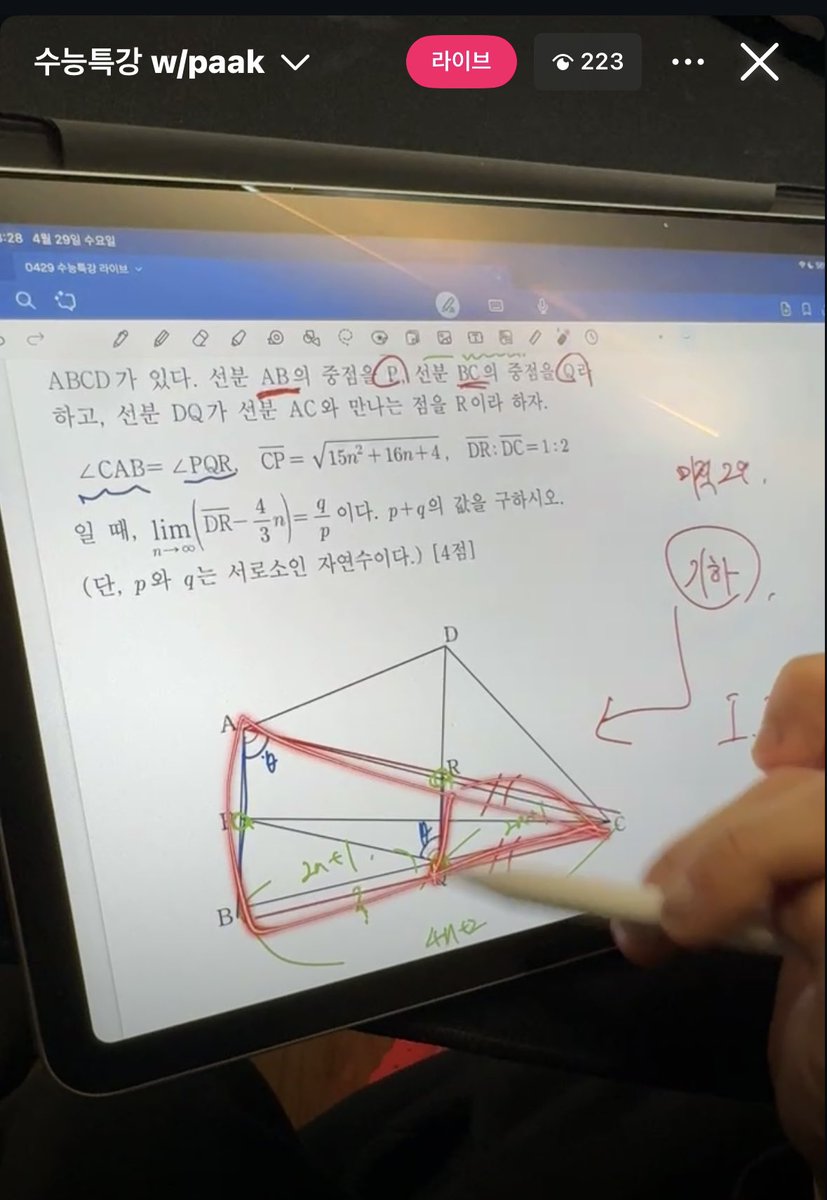 수능특강 w/paak
라이브
223
:28 4월 29일 수요일
0429 수능특강 라이브
ABCD가 있다. 선분 AB의 중점을 P, 선분 BC의 중점을 Q라
하고, 선분 DQ가 선분 AC와 만나는 점을 R이라 하자.
∠CAB=∠PQR, CP=√15n²+16n+4, DR:DC=1:2
일 때, lim n→∞ (DR-4/3n)=q/p이다. p+q의 값을 구하시오.
(단, p와 q는 서로소인 자연수이다.) [4점]
미적 29.
기하
I.
D
A
θ
R
P
C
θ
2n+1
2n+1
Q
B
4n+2